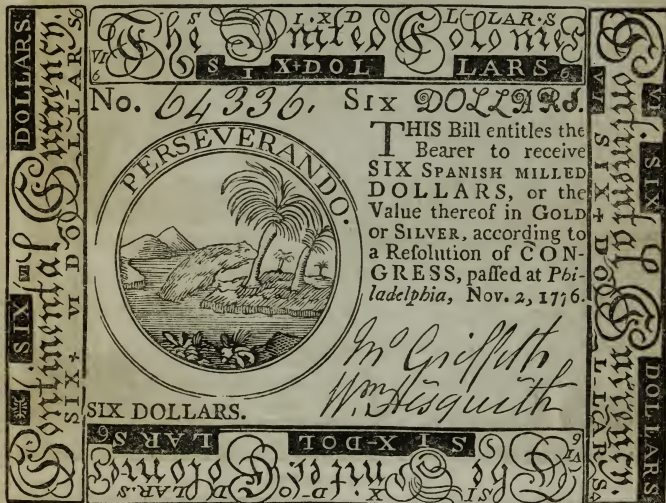 SIX DOLLARS
VI The United Colonies
6 SIX+DOLLARS 6
No. 64336. SIX DOLLARS.
PERSEVERANDO.
THIS Bill entitles the
Bearer to receive
SIX SPANISH MILLED
DOLLARS, or the
Value thereof in GOLD
or SILVER, according to
a Resolution of CON-
GRESS, passed at Phi-
ladelphia, Nov. 2, 1776.
Griffith
Wm Asquith
SIX DOLLARS.
Continental Currency
SIX DOLLARS
SIX+ VI DOLLARS 6
Continental Currency
VI SIX DOLLARS
VI SIX+ DOLLARS
6 SIX-DOLLARS 6
The United Colonies
SIX DOLLARS